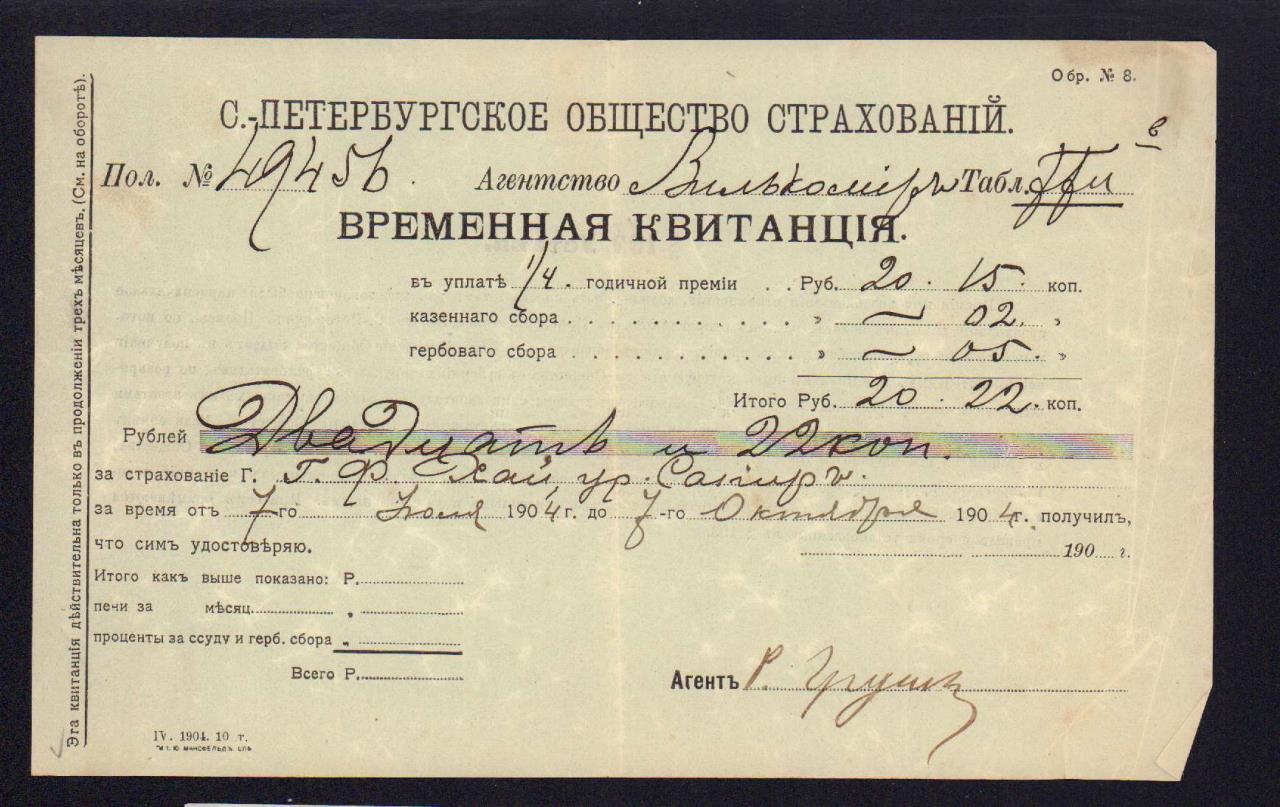 Обр. № 8.
С.-ПЕТЕРБУРГСКОЕ ОБЩЕСТВО СТРАХОВАНІЙ.
Пол. № 49456 Агентство Вилькоміръ Табл.
ВРЕМЕННАЯ КВИТАНЦІЯ.
въ уплатѣ 1/4 годичной преміи . . Руб. 20. 15 коп.
казеннаго сбора . . . . . . . . . . . „ — 02. „
гербоваго сбора . . . . . . . . . . . „ — 05. „
Итого Руб. 20. 22. коп.
Рублей Двадцать и 22 коп.
за страхованіе Г. Г. Ф. Хай, ур. Сапиръ.
за время отъ 7-го Іюля 1904 г. до 7-го Октября 1904 г. получилъ,
что симъ удостовѣряю. 190 г.
Итого какъ выше показано: Р.
печи за мѣсяц. „
проценты за ссуду и герб. сбора „
Всего Р.
Агентъ Р.
IV. 1904. 10 т.
Эта квитанція дѣйствительна только въ продолженіи трехъ мѣсяцевъ. (См. на оборотѣ).